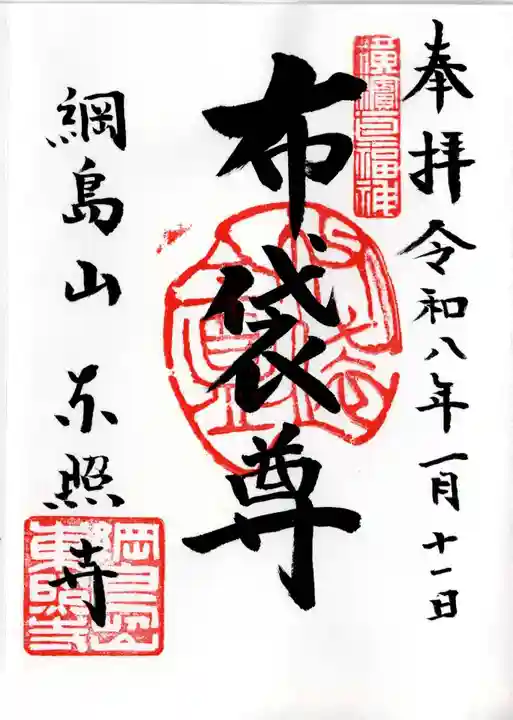 奉拝 令和八年一月十一日
横濱七福神
布袋尊
綱島山 東照寺
綱島山
東照寺